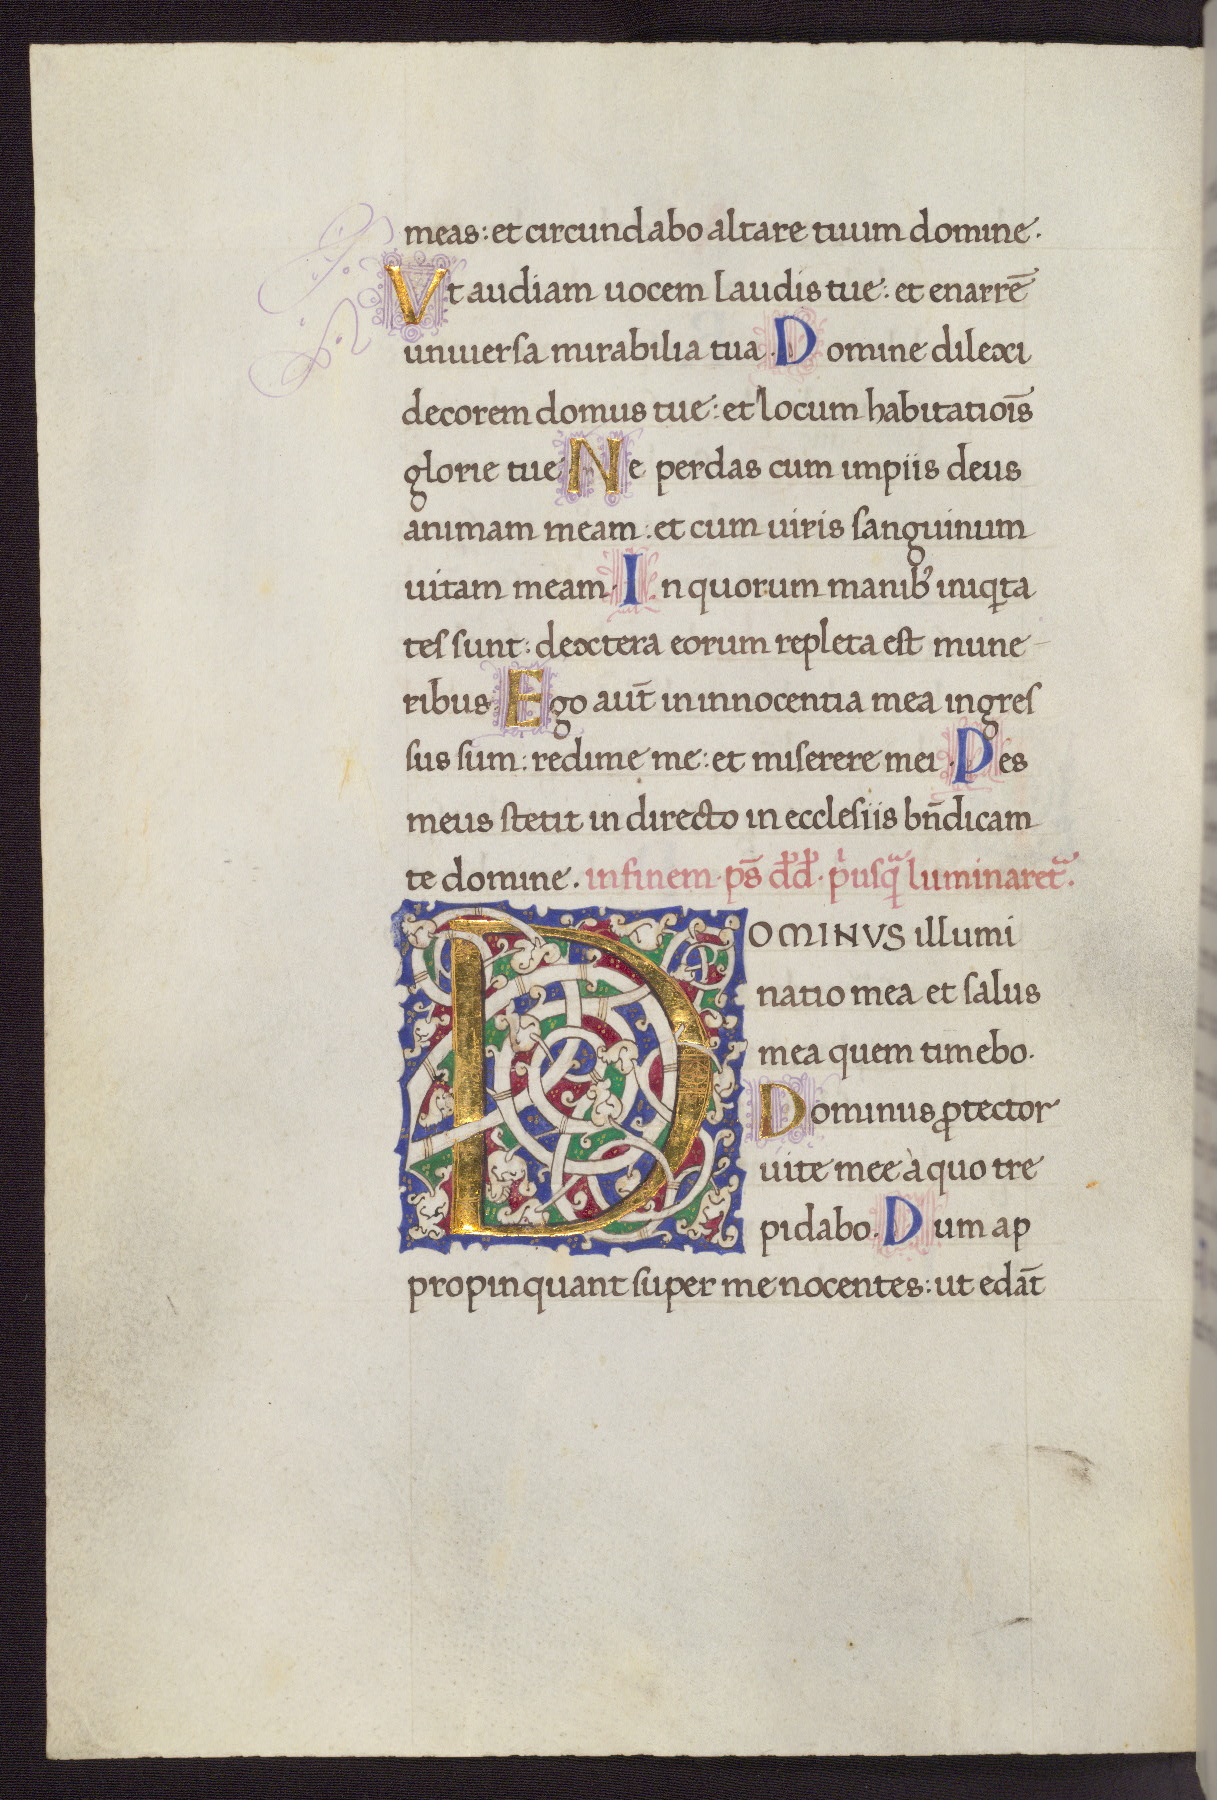 meas: et circundabo altare tuum domine.
Vt audiam uocem laudis tue: et enarrē
uniuersa mirabilia tua. Domine dilexi
decorem domus tue: et locum habitatiōis
glorie tue. Ne perdas cum impiis deus
animam meam: et cum uiris sanguinum
uitam meam. In quorum manibꝰ iniqͥta
tes sunt: dextera eorum repleta est mune-
ribus. Ego aut̄ in innocentia mea ingres
sus sum: redime me: et miserere mei. Pes
meus stetit in directo in ecclesiis bn̄dicam
te domine. in finem. ps̄ d̄d̄. pͥusqͣ luminaret͛.
DOMINVS illumi
natio mea et salus
mea quem timebo.
Dominus ꝓtector
uite mee à quo tre
pidabo. Dum ap
propinquant super me nocentes: ut edāt